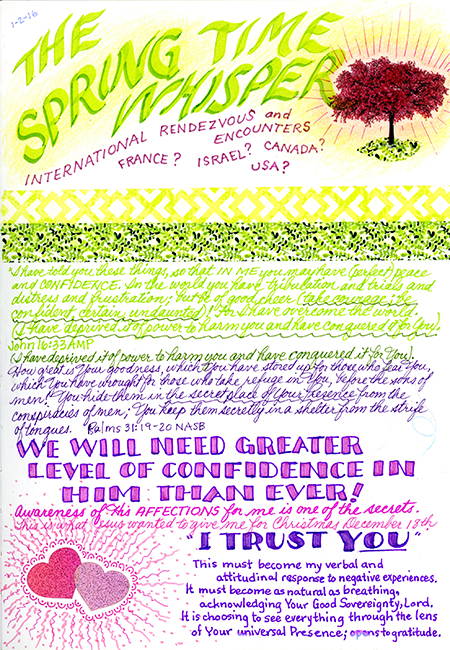 1-2-16
THE
SPRING TIME
WHISPER
INTERNATIONAL RENDEZVOUS and
ENCOUNTERS
FRANCE? ISRAEL? CANADA?
USA?
"I have told you these things, so that IN ME you may have (perfect) peace
and CONFIDENCE. In the world you have tribulation and trials and
distress and frustration; but be of good cheer (take courage; be
confident, certain, undaunted)! For I have overcome the world.
(I have deprived it of power to harm you and have conquered it for You).
John 16:33 AMP
(I have deprived it of power to harm you and have conquered it for You).
How great is Your goodness, which You have stored up for those who fear You,
which You have wrought for those who take refuge in You, before the sons of
men! You hide them in the secret place of Your presence from the
conspiracies of men; You keep them secretly in a shelter from the strife
of tongues. Psalms 31:19-20 NASB
WE WILL NEED GREATER
LEVEL OF CONFIDENCE IN
HIM THAN EVER!
Awareness of His AFFECTIONS for me is one of the secrets.
This is what Jesus wanted to give me for Christmas December 18th
"I TRUST YOU"
This must become my verbal and
attitudinal response to negative experiences.
It must become as natural as breathing,
acknowledging Your Good Sovereignty, Lord.
It is choosing to see everything through the lens
of Your universal Presence; opens to gratitude.